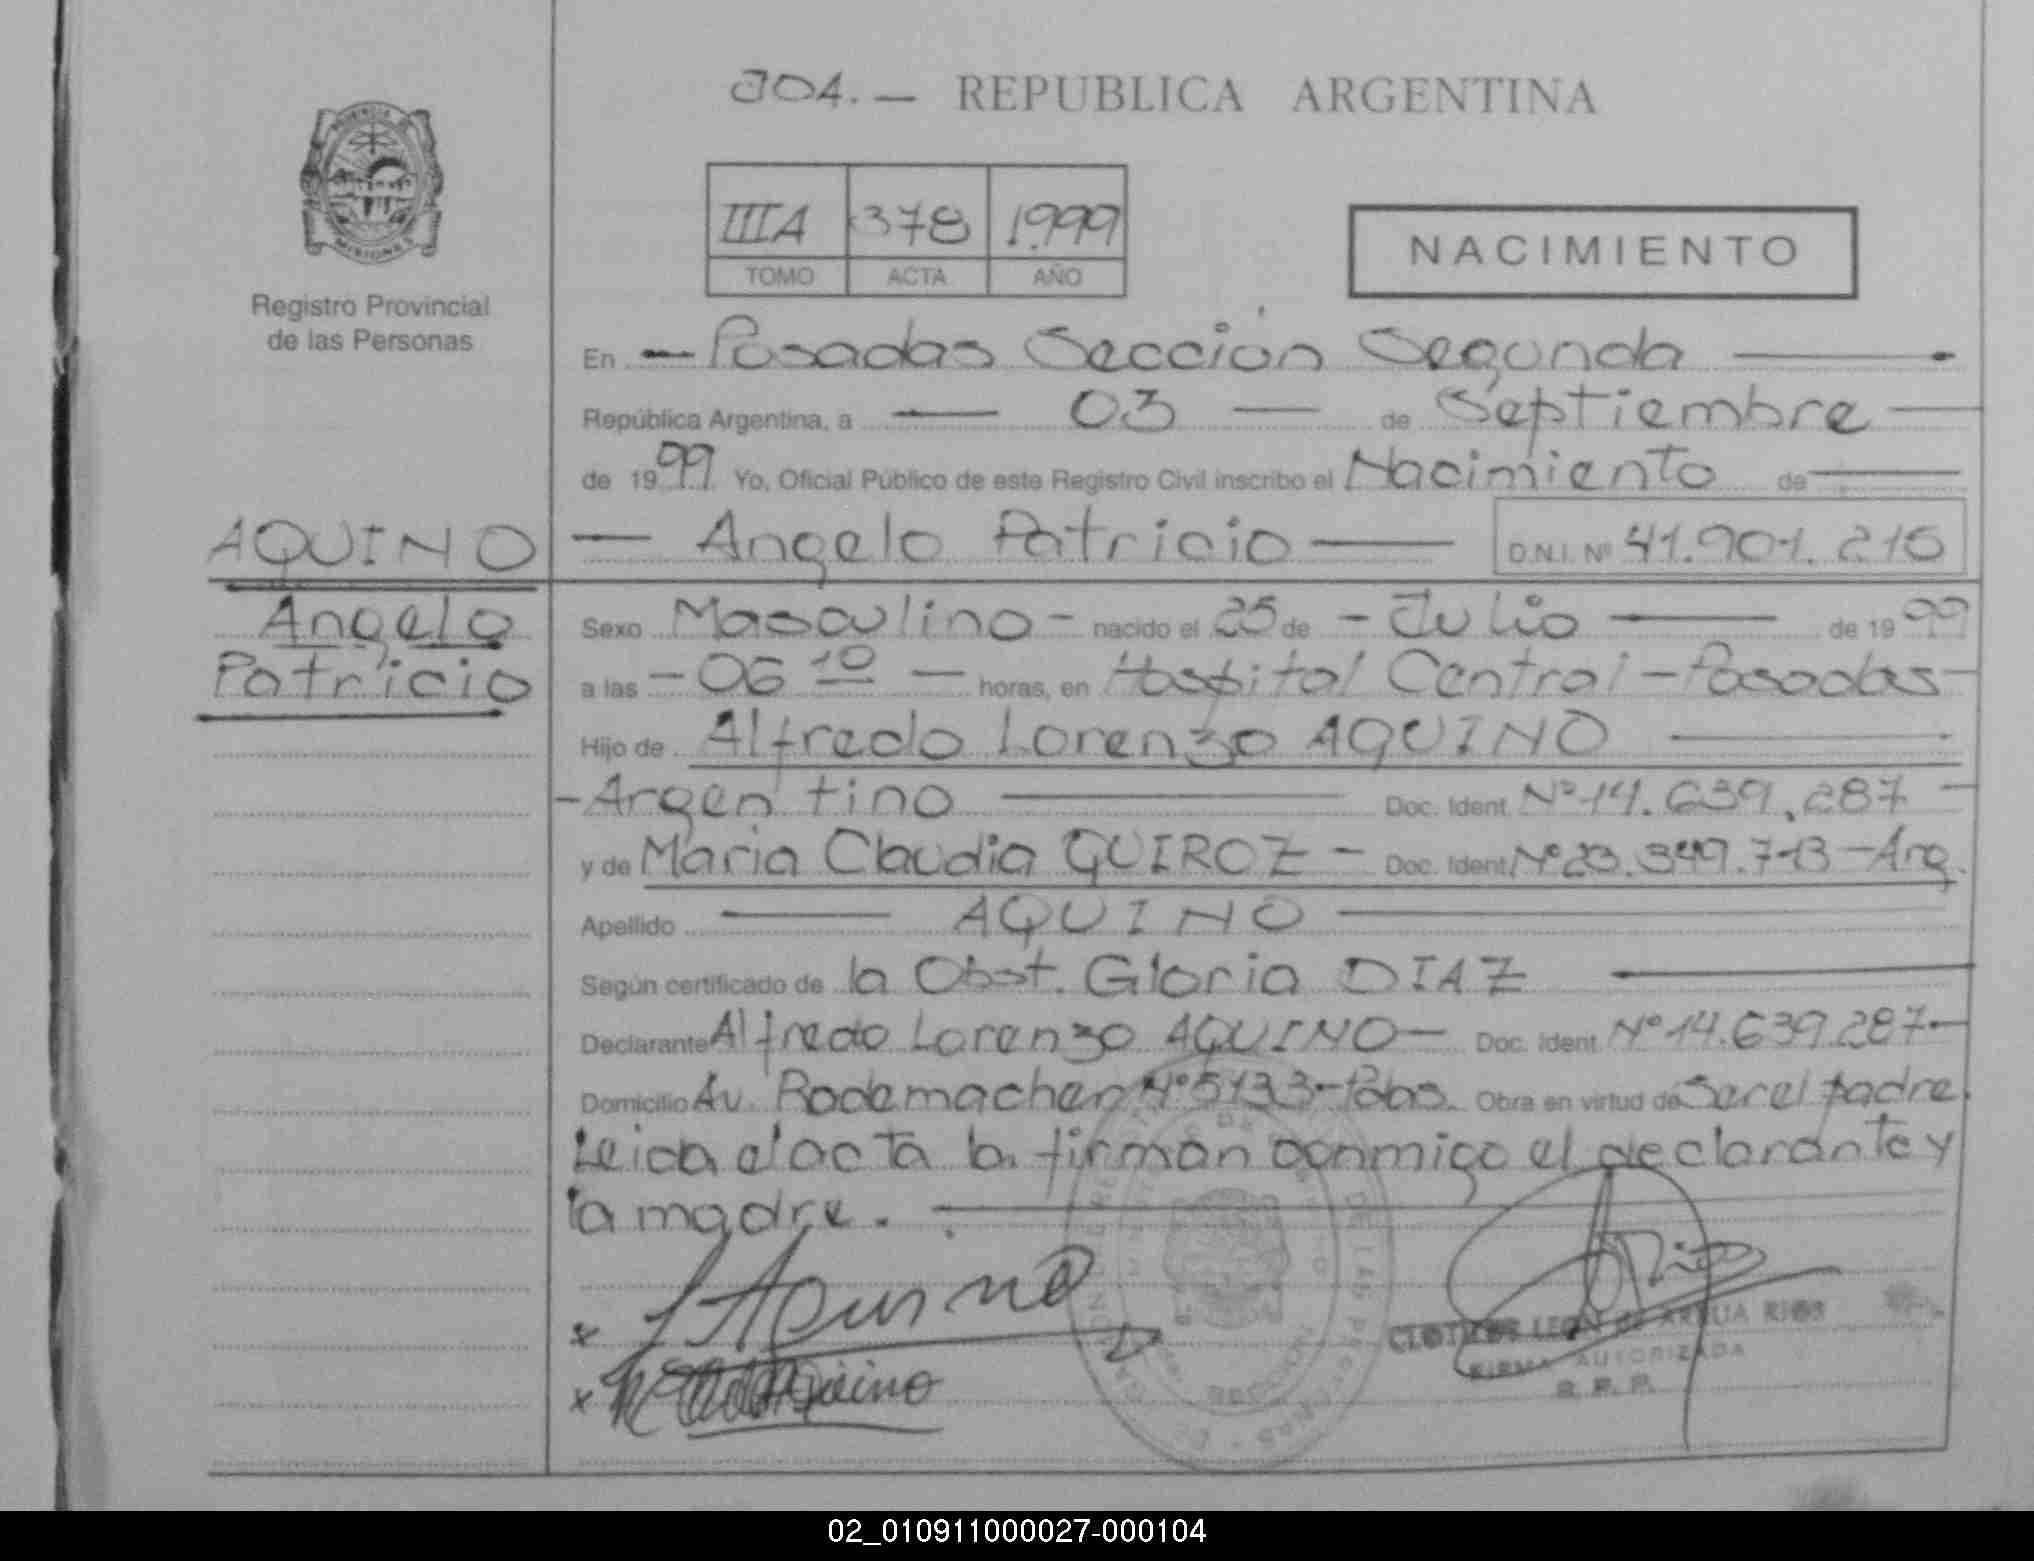 304. — REPUBLICA ARGENTINA
PROVINCIA DE MISIONES
Registro Provincial
de las Personas
IIIA 378 1999
TOMO ACTA AÑO
NACIMIENTO
En — Posadas Sección Segunda —
República Argentina, a — 03 — de Septiembre —
de 1999 Yo, Oficial Público de este Registro Civil inscribo el Nacimiento de —
AQUINO — Angelo Patricio — D.N.I. Nº 41.901.215
Angelo Sexo Masculino - nacido el 25 de - Julio — de 1999
Patricio a las - 06 10 — horas, en Hospital Central - Posadas -
Hijo de Alfredo Lorenzo AQUINO —
- Argentino — Doc. Ident. Nº 14.639.287 —
y de Maria Claudia QUIROZ - Doc. Ident. Nº 23.349.713 - Arg.
Apellido — AQUINO —
Según certificado de la Obst. Gloria DIAZ —
Declarante Alfredo Lorenzo AQUINO — Doc. Ident. Nº 14.639.287 —
Domicilio Av. Rademacher Nº 5133 - Pdas. Obra en virtud de ser el padre.
Leida el acta la firman conmigo el declarante y
la madre. —
x Aquino
x Aquino
CLOTILDE LEON DE ARRUA RIOS
FIRMA AUTORIZADA
R. P. P.
02_010911000027-000104